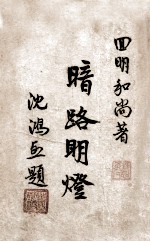 回明和尚著
暗路明燈
沈鴻題